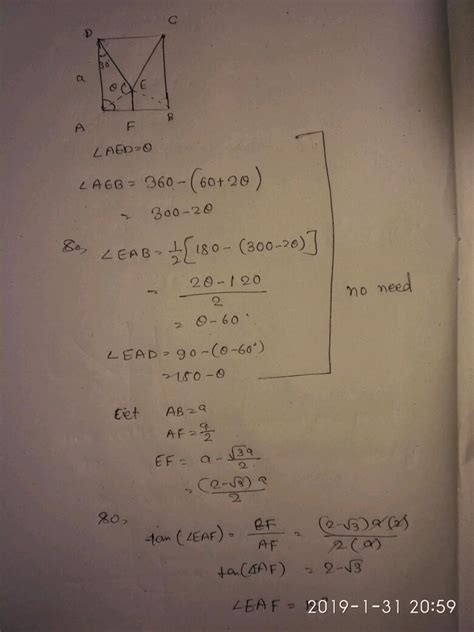 D C
30
a
θ E
A F B
∠AED=θ
∠AEB = 360-(60+2θ)
= 300-2θ
So, ∠EAB = 1/2[180-(300-2θ)]
= (2θ-120)/2
= θ-60°
∠EAD = 90-(θ-60°)
=150-θ
no need
Let AB=a
AF=a/2
EF = a-√3a/2
= (2-√3)a/2
So,
tan(∠EAF) = EF/AF = (2-√3)a(2)/2(a)
tan(∠EAF) = 2-√3
∠EAF =
2019-1-31 20:59